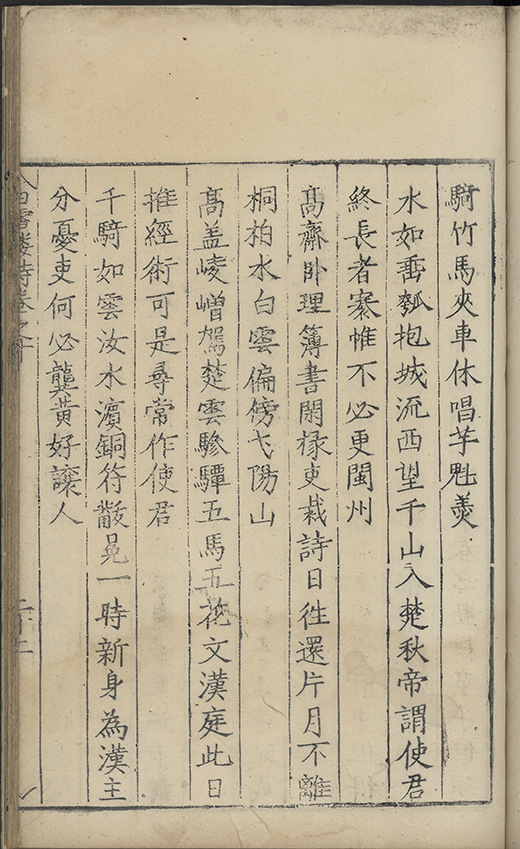 騎竹馬夾車休唱芋魁羮
水如垂瓠抱城流西望千山入楚秋帝謂使君
終長者褰帷不必更閩州
高齋卧理簿書閑掾吏裁詩日徃還片月不離
桐柏水白雲偏傍弋陽山
高盖崚嶒駕楚雲驂驔五馬五花文漢庭此日
推經術可是尋常作使君
千騎如雲汝水濵銅符黻冕一時新身為漢主
分憂吏何必龔黄好譲人
白雪樓詩卷之
二十二